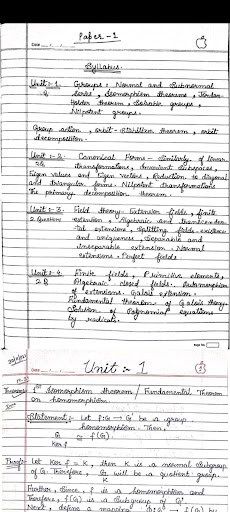 Paper-1
Syllabus:-
Unit:-1 Groups: Normal and Subnormal
2Q series, Isomorphism theorems, Jordan-
Holder theorem, Solvable groups,
Nilpotent groups.
Group action, orbit-stabilizer theorem, orbit
decomposition.
Unit:-2. Canonical Forms- Similarity of linear
2Q transformations, Invariant Subspaces,
Eigen values and Eigen vectors, Reduction to diagonal
and triangular forms. Nilpotent transformations
The primary decomposition theorem.
Unit:-3. Field theory: Extension fields, finite
2 Questions extension, Algebraic and transcenden-
-tal extensions, Splitting fields- existence
and uniqueness, Separable and
inseparable extension, Normal
extensions, Perfect fields
Unit:-4. Finite fields, Primitive elements,
2Q Algebraic closed fields. Automorphism
of extensions. Galois extension.
Fundamental theorem of Galois theory
Solution of Polynomial equations
by radicals.
Page No.
Date
Unit:- 1
Theorem 1st Isomorphism theorem / Fundamental Theorem
on homomorphism.
Statement:- Let f:G → G' be a group
homomorphism. Then,
G/Ker f ≅ f(G)
Proof:- Let Ker f = K, then K is a normal Subgroup
of G. Therefore, G/K will be a quotient group.
Further, Since, f is a homomorphism and
Therefore, f(G) is a Subgroup of G'.
Next, define a mapping